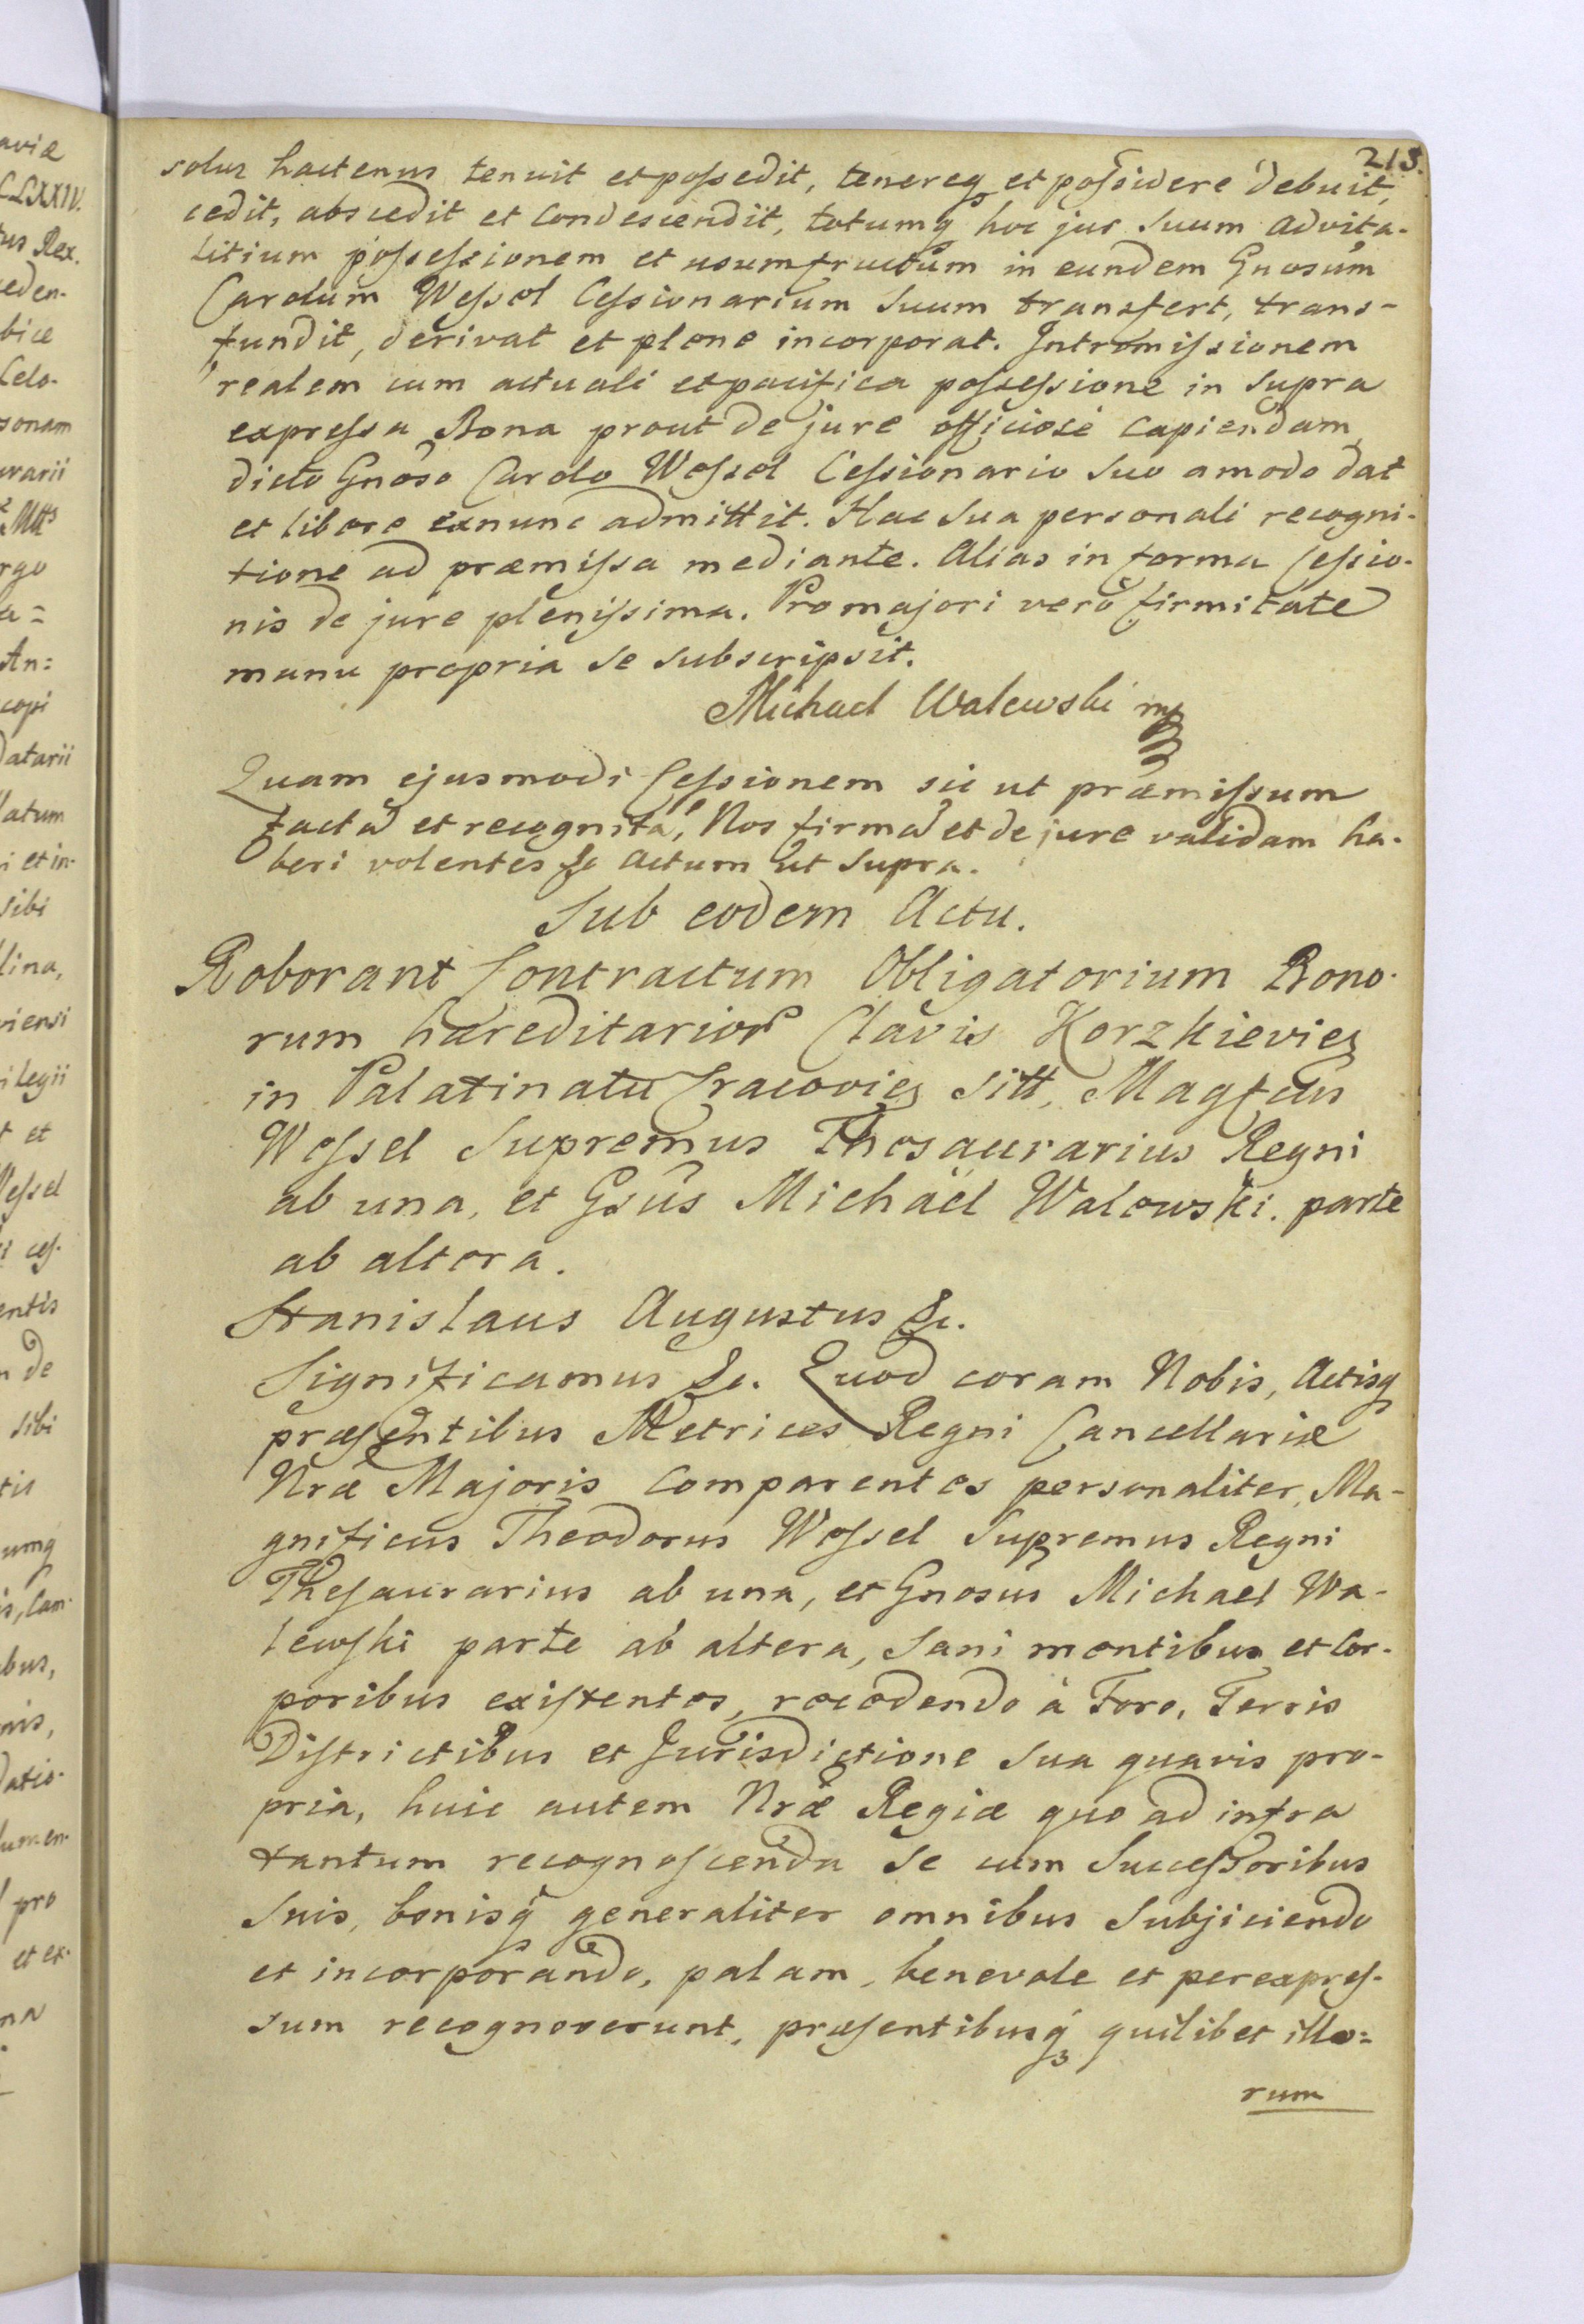 213.
solus hactenus tenuit et possedit, tenereq et possidere debuit,
cedit, abscedit et condescendit, totumq hoc jus suum advita-
litium possessionem et usumfructum in eundem Gnosum
Carolum Wessel Cessionarium suum transfert, trans-
fundit, derivat et plene incorporat. Intromissionem
realem cum actuali et pacifica possessione in supra
expressa Bona prout de jure officiose capiendam
dicto Gnoso Carolo Wessel Cessionario suo amodo dat
et libere exnunc admittit. Hac sua personali recogni-
tione ad præmissa mediante. Alias in forma Cessio-
nis de jure plenissima. Pro majori vero firmitate
manu propria se subscripsit.
Michael Walewski mp
Quam ejusmodi Cessionem sic ut præmissum
facta et recognita, Nos firma et de jure validam ha-
beri volentes &c Actum ut supra.
Sub eodem Actu.
Roborant Contractum Obligatorium Bono-
rum hæreditarior Clavis Korzkievieę
in Palatinatu Cracovieę sitt, Magfcus
Wessel Supremus Thesaurarius Regni
ab una, et Gsus Michaël Walewski. parte
ab altera.
Stanislaus Augustus &c.
Significamus &c. Quod coram Nobis, Actisq
præsentibus Metrices Regni Cancellariæ
Nræ Majoris comparentes personaliter, Ma-
gnificus Theodorus Wessel Supremus Regni
Thesaurarius ab una, et Gnosus Michael Wa-
lewski parte ab altera, sani mentibus et Cor-
poribus existentes, recedendo à Foro, Terris
Districtibus et Jurisdictione sua quavis pro-
pria, huic autem Nræ Regiæ quo ad infra
tantum recognoscenda se cum Successoribus
suis, bonisq generaliter omnibus subjiciendo
et incorporando, palam, benevole et perexpres-
sum recognoverunt, præsentibusq quilibet illo=
rum